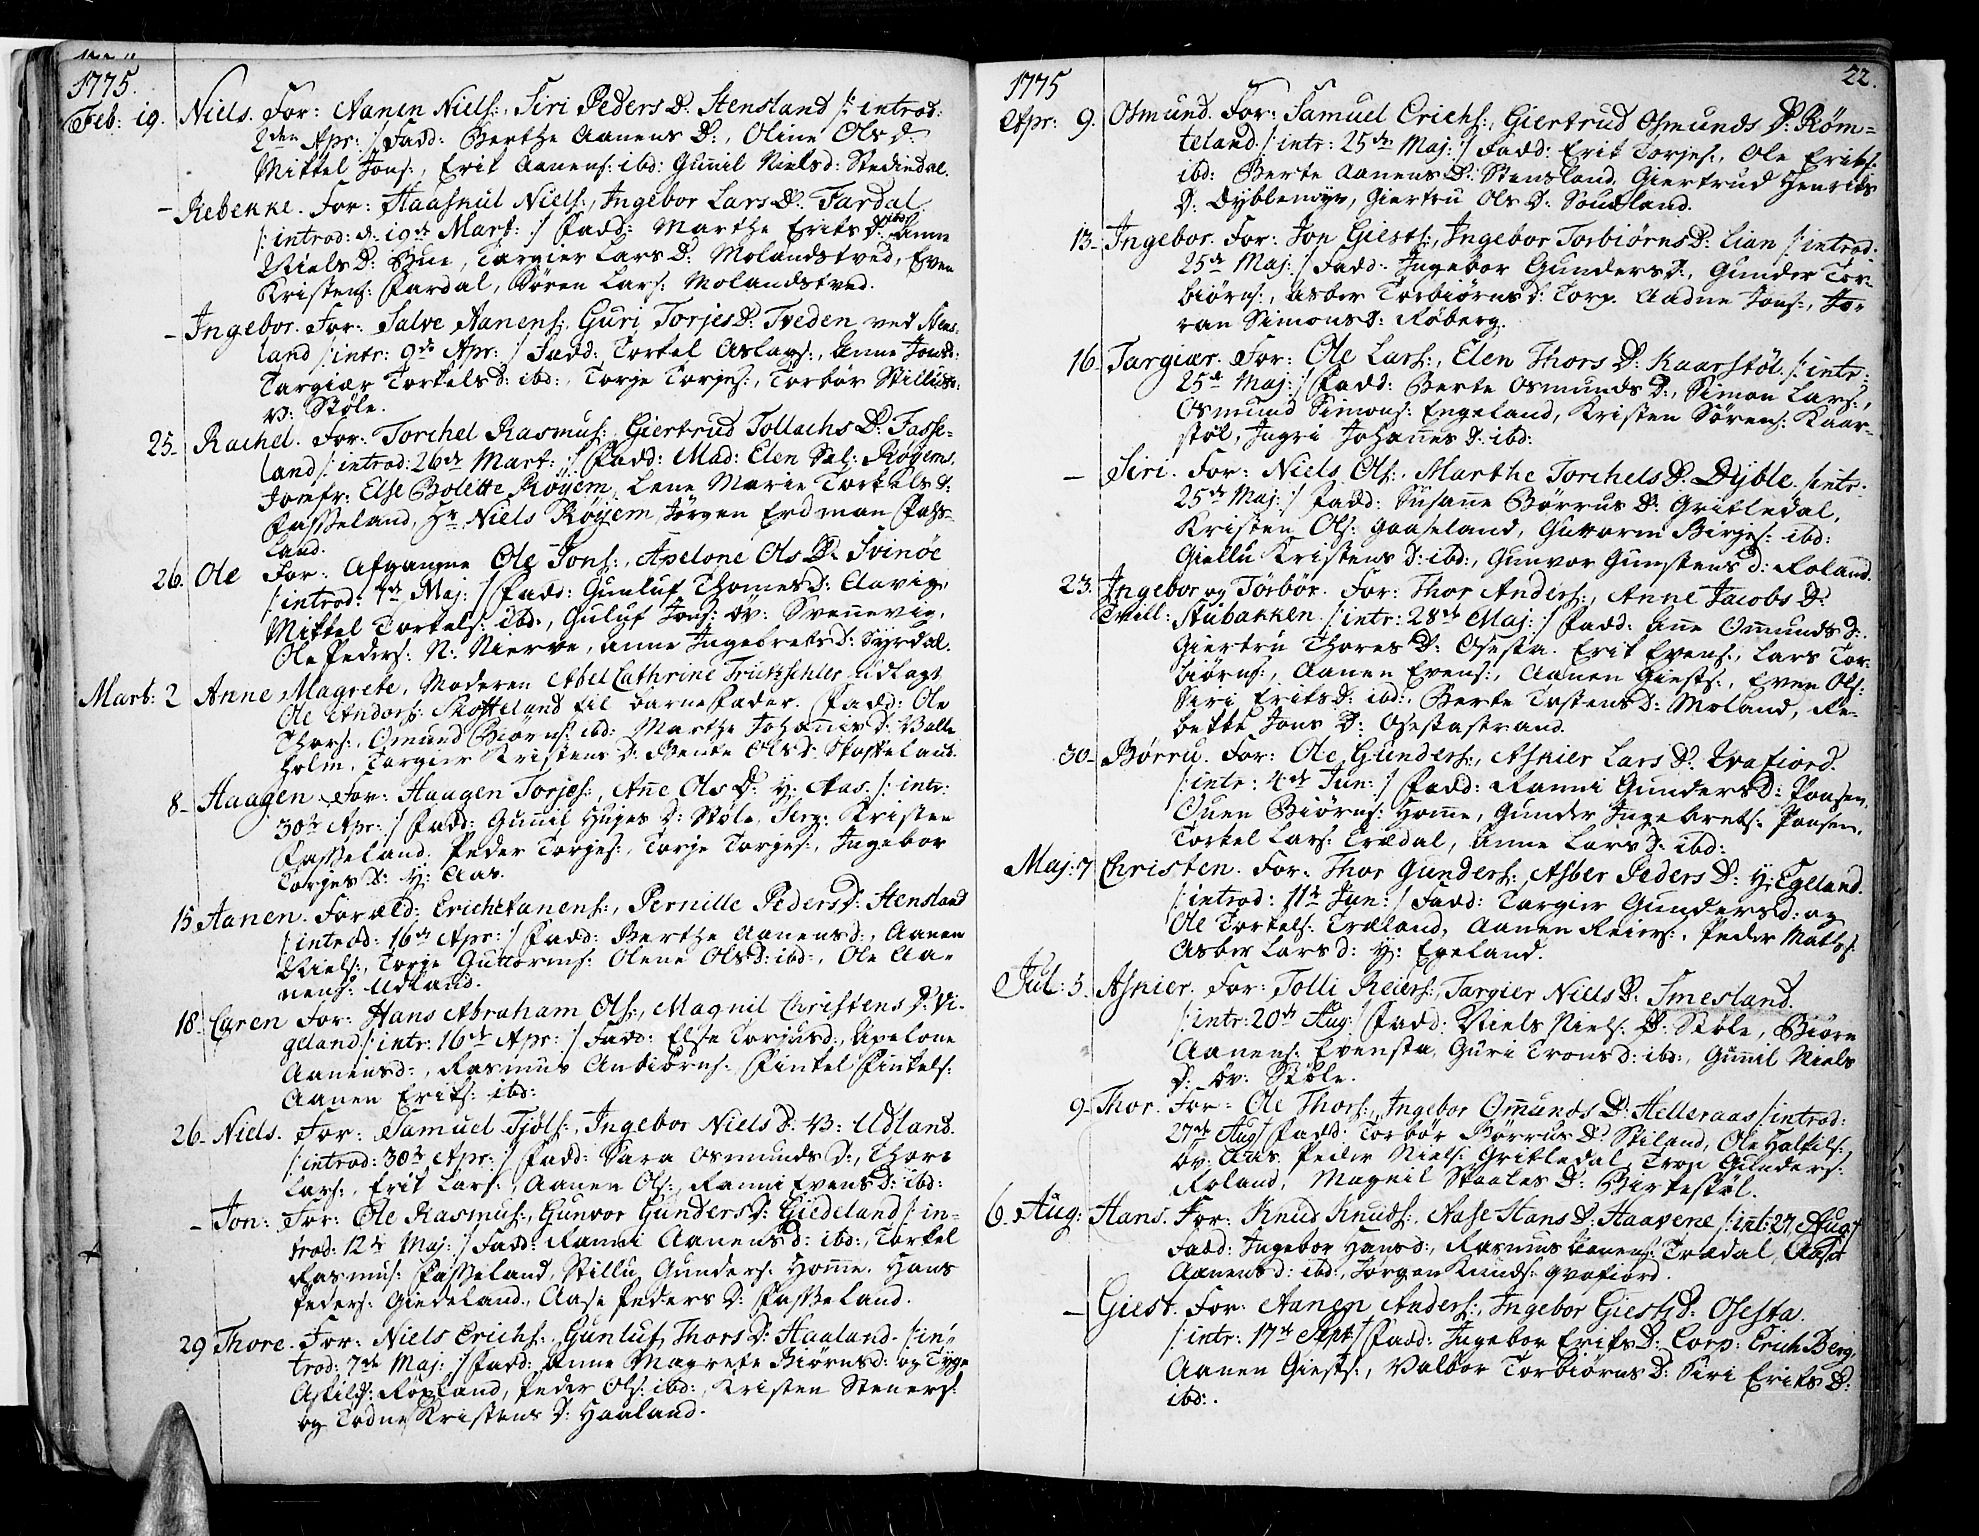 1775.
Feb: 19. Niels. For: Aanen Niels:, Siri Peders D: Stensland /: introd:
2den Apr: :/ Fadd: Berthe Aanens D:, Oline Ols D:
Mikkel Jons:, Erik Aanens: ibd: Gunil Niels D: Stediedal.
- Rebekke. For: Haaskul Niels:, Ingebor Lars D: Fardal.
/: introd: d: 19de Mart: :/ Fadd: Marthe Eriks D: ibd: Anne
Niels D: Hue, Targier Lars D: Molandsved, Even
Kristens: Fardal, Søren Lars: Molandstved.
- Ingebor. For: Salve Aanens:, Guri Torjes D: Tveden ved Stens-
land /: intr: 9de Apr: :/ Fadd: Torkel Aslags:, Anne Jons D:
Targiær Torkels D: ibd:, Torje Torjes:, Torbør Stillufs:
N: Støle.
25- Rachel. For: Torchel Rasmus:, Giertrud Tollachs D: Fasse-
land /: introd: 26de Mart: :/ Fadd: Mad: Elen Sal: Røyems.
Jomfr: Else Bolette Røyem, Lene Marie Torkels D:
Fasseland, Hr Niels Røyem, Jørgen Erdman Fass-
land.
26. Ole For: Afgangne Ole Jons:, Apelone Ols D: Svinøe
/: introd: 7de Maj: :/ Fadd: Gunluf Thomes D: Aavig,
Mikkel Torkels: ibd:, Guluf Jons: øv: Svennevig,
Ole Peders: N: Nierve, Anne Ingebrets D: Syrdal.
Mart: 2 Anne Magrete, Moderen Abel Cathrine Tritzschler udlagt
Ole Andors: Skofteland til barnefader. Fadd: Ole
Thors:, Osmund Biørns: ibd: Marthe Johannis D: Valle
holm, Targier Kristens D: Bente Ols D: Skofteland.
8- Haagen. For: Haagen Torjes:, Ane Ols D: y: Aas. /: intr:
30te Apr: :/ Fadd: Gunil Huges D: Støle, Serg: Kristen
Fasseland, Peder Torjes:, Torje Torjes:, Ingebor
Torjes D: y: Aas.
15 Aanen. Foræld: Erich Aanens:, Pernille Peders D: Stensland
/: introd: 16de Apr: :/ Fadd: Berthe Aanens D:, Aanen
Niels:, Torje Guttorms: Olene Ols D: ibd:, Ole Aa-
nens: Udland.
18. Caren For: Hans Abraham Ols:, Magnil Christens D: Vi-
geland /: intr: 16de Apr: :/ Fadd: Else Torjus D:, Apelone
Aanens D:, Rasmus Anbiørns: Finkel Finkels:
Aanen Eriks: ibd:
26- Niels. For: Samuel Tjøls:, Ingebor Niels D: N: Udland.
/: introd: 30te Apr: :/ Fadd: Sara Osmunds D:, Thore
Lars:, Erik Lars:, Aanen Ols:, Ranni Evens D: ibd:
- Jon: For: Ole Rasmus:, Gunvor Gunders D: Giedeland /: in-
trod: 12te Maj: :/ Fadd: Ranni Aanens D: ibd:, Torkel
Rasmus: Fasseland, Stillu Gunders: Homme. Hans
Peders: Giedeland, Aase Peders D: Fasseland.
29 Thore. For: Niels Erichs:, Gunluf Thors D: Haaland. /: in-
trod: 7de Maj: :/ Fadd: Anne Magrete Biørns D: og Tyge
Askilds: Røyland, Peder Ols: ibd:, Kristen Steners:
og Todne Kristens D: Haaland.
1775 22.
Apr: 9. Osmund. For: Samuel Erichs:, Giertrud Osmunds D: Røm-
teland /: intr: 25de Maj: :/ Fadd: Erik Torjes:, Ole Eriks:
ibd: Berte Aanens D: Stensland, Giertrud Henriks
D: Dyblemyr, Giertru Ols D: Soudland.
13- Ingebor. For: Jon Giests:, Ingebor Torbiørns D: Lian /: introd:
25de Maj: :/ Fadd: Ingebor Gunders D:, Gunder Tor-
biørns:, Asber Torbiørns D: Torp. Aadne Jons:, Jo-
ran Simons D: Røberg.
16- Targiær. For: Ole Lars:, Elen Thors D: Kaarstøl. /: intr:
25de Maj: :/ Fadd: Berte Osmunds D:, Simon Lars:,
Osmund Simons: Engeland, Kristen Sørens: Kaar-
støl, Ingri Johannes D: ibd:
- Siri. For: Niels Ols:, Marthe Torchels D: Dyble. /: intr:
25de Maj: :/ Fadd: Susanne Børrus D: Grikledal,
Kristen Ols: Gaaseland, Guttorm Birjes: ibd:
Giellu Kristens D: ibd:, Gunvor Gunstens D: Roland.
23. Ingebor og Torbør. For: Thor Anders:, Anne Jacobs D:
Tvill: Stubakken /: intr: 28de Maj: :/ Fadd: Ane Omunds D:
Giertru Thores D: Osesta. Erik Evens:, Lars Tor-
biørns:, Aanen Evens:, Aanen Giests:, Even Ols:
Siri Eriks D: ibd:, Berte Tostens D: Moland, Re-
bekke Jons D: Osestastrand.
30- Børru. For: Ole Gunders:, Asnier Lars D: Qvafiord.
/: intr: 4de Jun: :/ Fadd: Ranni Gunders D: Paasen,
Ouen Biørns: Home, Gunder Ingebrets: Paasen,
Torkel Lars: Trædal, Anne Lars D: ibd:
Maj: 7 Christen. For: Thor Gunders:, Asber Peders D: y: Egeland.
/: introd: 11te Jun: :/ Fadd: Targier Gunders D: og
Ole Torkels: Træland, Aanen Reiers:, Peder Mathis:
Asber Lars D: y: Egeland.
Jul: 5. Asnier. For: Tolli Reiers:, Targier Niels D: Smesland.
/: intr: 20de Aug: :/ Fadd: Niels Niels: D: Støle, Biørn
Aanens: Evensta, Guri Trons D: ibd:, Gunnil Niels
D: øv: Støle.
9- Thor. For: Ole Thors:, Ingebor Omunds D: Helleraas /: introd:
27de Aug: / Fadd: Torbør Børrus D: Skiland, Ole Halkils:
øv: Aas, Peder Niels: Grikledal, Troje Gunders:
Roland, Magnil Staales D: Birkestøl.
6. Aug: Hans. For: Knud Knuds:, Aase Hans D: Haavene /: int: 27 Aug:/
Fadd: Ingebor Hans D:, Rasmus Aanens: Trædal, Aase
Aanens D: ibd:, Jørgen Knuds: Qvafiord.
- Giest. For: Aanen Anders:, Ingebor Giests D: Osesta.
/: intr: 17de Sept: / Fadd: Ingebor Eriks D: Corp: Erich Berg,
Aanen Giests:, Valbor Torbiørns D: Siri Eriks D:
ibd:.